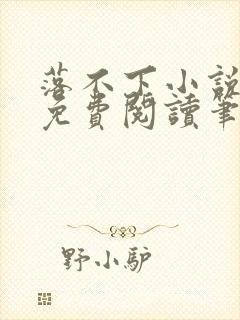 落不下小說
免費閱讀筆
野小驴